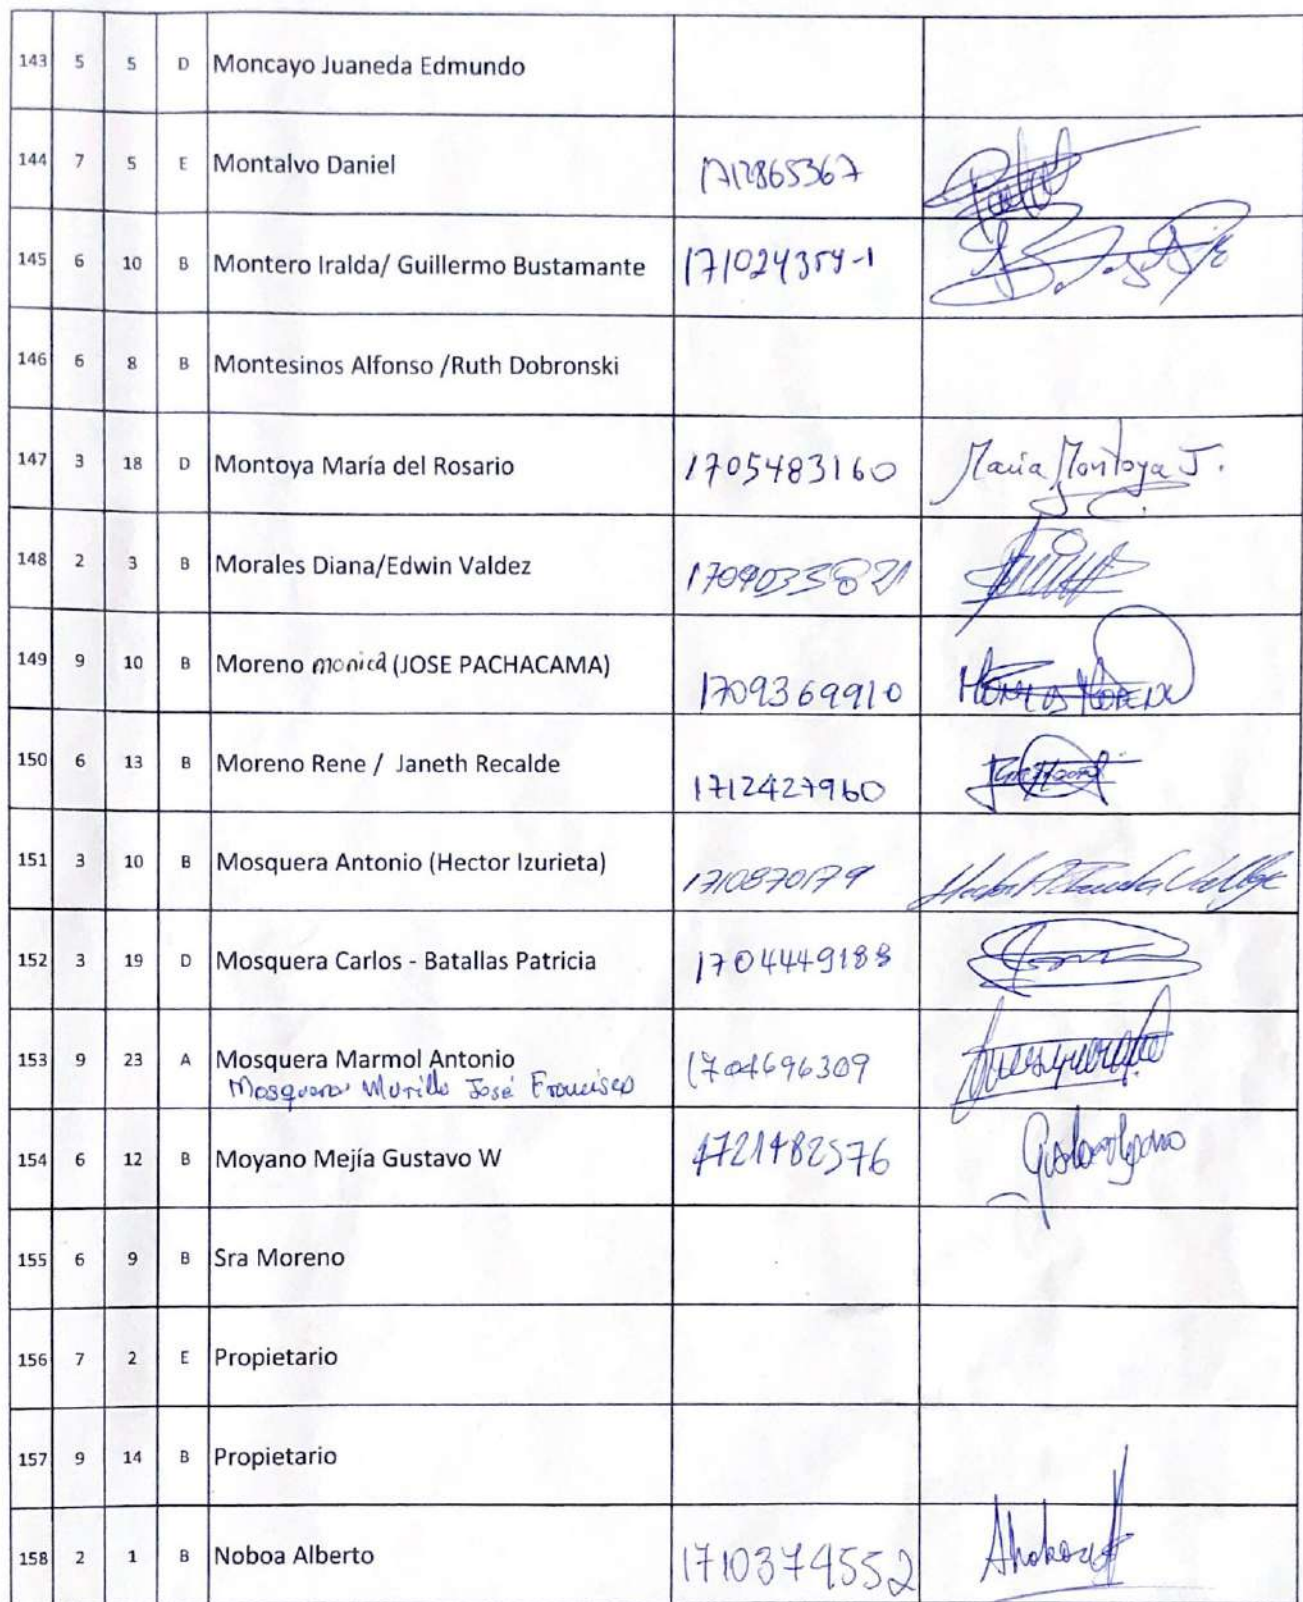 143 5 5 D Moncayo Juaneda Edmundo
144 7 5 E Montalvo Daniel 1712865367
145 6 10 B Montero Iralda/ Guillermo Bustamante 171024354-1
146 6 8 B Montesinos Alfonso /Ruth Dobronski
147 3 18 D Montoya María del Rosario 1705483160 Maria Montoya J.
148 2 3 B Morales Diana/Edwin Valdez 1709033821
149 9 10 B Moreno monica (JOSE PACHACAMA) 1709369910
150 6 13 B Moreno Rene / Janeth Recalde 1712427960
151 3 10 B Mosquera Antonio (Hector Izurieta) 1710870179
152 3 19 D Mosquera Carlos - Batallas Patricia 1704449188
153 9 23 A Mosquera Marmol Antonio 1704696309
Mosquera Murillo José Francisco
154 6 12 B Moyano Mejía Gustavo W 1721482576
155 6 9 B Sra Moreno
156 7 2 E Propietario
157 9 14 B Propietario
158 2 1 B Noboa Alberto 1710374552